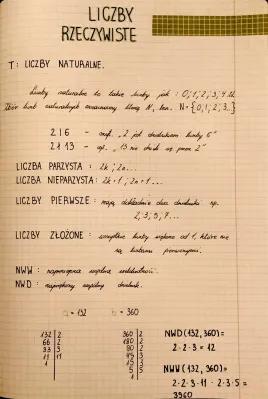 LICZBY
RZECZYWISTE
T: LICZBY NATURALNE.
Liczby naturalne to takie liczby jak : 0, 1, 2, 3, 4 itd.
Zbiór liczb naturalnych oznaczamy literą N, tzn. N = {0, 1, 2, 3..}
2 | 6 - „2 jest dzielnikiem liczby 6"
2 ∤ 13 - np. „13 nie dzieli się przez 2"
LICZBA PARZYSTA : 2k, 2n...
LICZBA NIEPARZYSTA: 2k+1, 2n+1...
LICZBY PIERWSZE : mają dokładnie dwa dzielniki np.
2, 3, 5, 7...
LICZBY ZŁOŻONE : wszystkie liczby większe od 1, które nie
są liczbami pierwszymi.
NWW : najmniejsza wspólna wielokrotność.
NWD : największy wspólny dzielnik.
a = 132 b = 360
132 | 2 360 | 2 NWD (132, 360) =
66 | 2 180 | 2 2·2·3 = 12
33 | 3 90 | 2
11 | 11 45 | 3 NWW (132, 360) =
1 15 | 3 2·2·3·11·2·3·5 =
5 | 5 3960
1